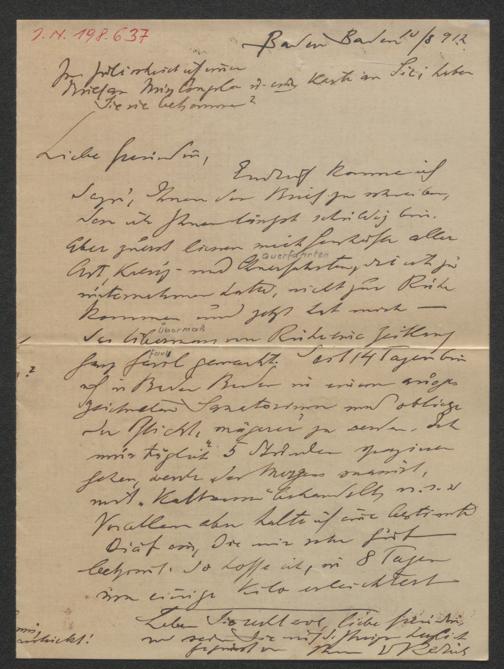 I.N. 198.637
Baden Baden 10/8 912
Im Juli schrieb ich einen
Brief an und eine Karte an Sie; haben
Sie sie bekommen?
Liebe Freundin,
Endlich komme ich
dazu, Ihnen den Brief zu schreiben,
den ich Ihnen längst schuldig bin.
Aber zuerst liessen mich Geschäfte aller
Querfahrten
Art, Kreuz- und Querfahrten, die ich zu
unternehmen hatte, nicht zur Ruhe
kommen und jetzt hat mich
Übermaß
das Übermass von Ruhe eine Zeitlang
faul
ganz faul gemacht. Seit 14 Tagen bin
ich in Baden Baden in einem ausge-
zeichneten Sanatorium und obliege
der Pflicht, magerer zu werden. Ich
muss täglich 5 Stunden spazieren
gehen, werde des Morgens massiert,
mit behandelt u.s.w
Vor allem aber halte ich eine bestimmte
Diät ein, die mir sehr gut
bekommt. So hoffe ich, in 8 Tagen
um einige Kilo erleichtert
Leben Sie recht wohl, liebe Freundin
und seien Sie herzlich
gegrüsst von Ihrem